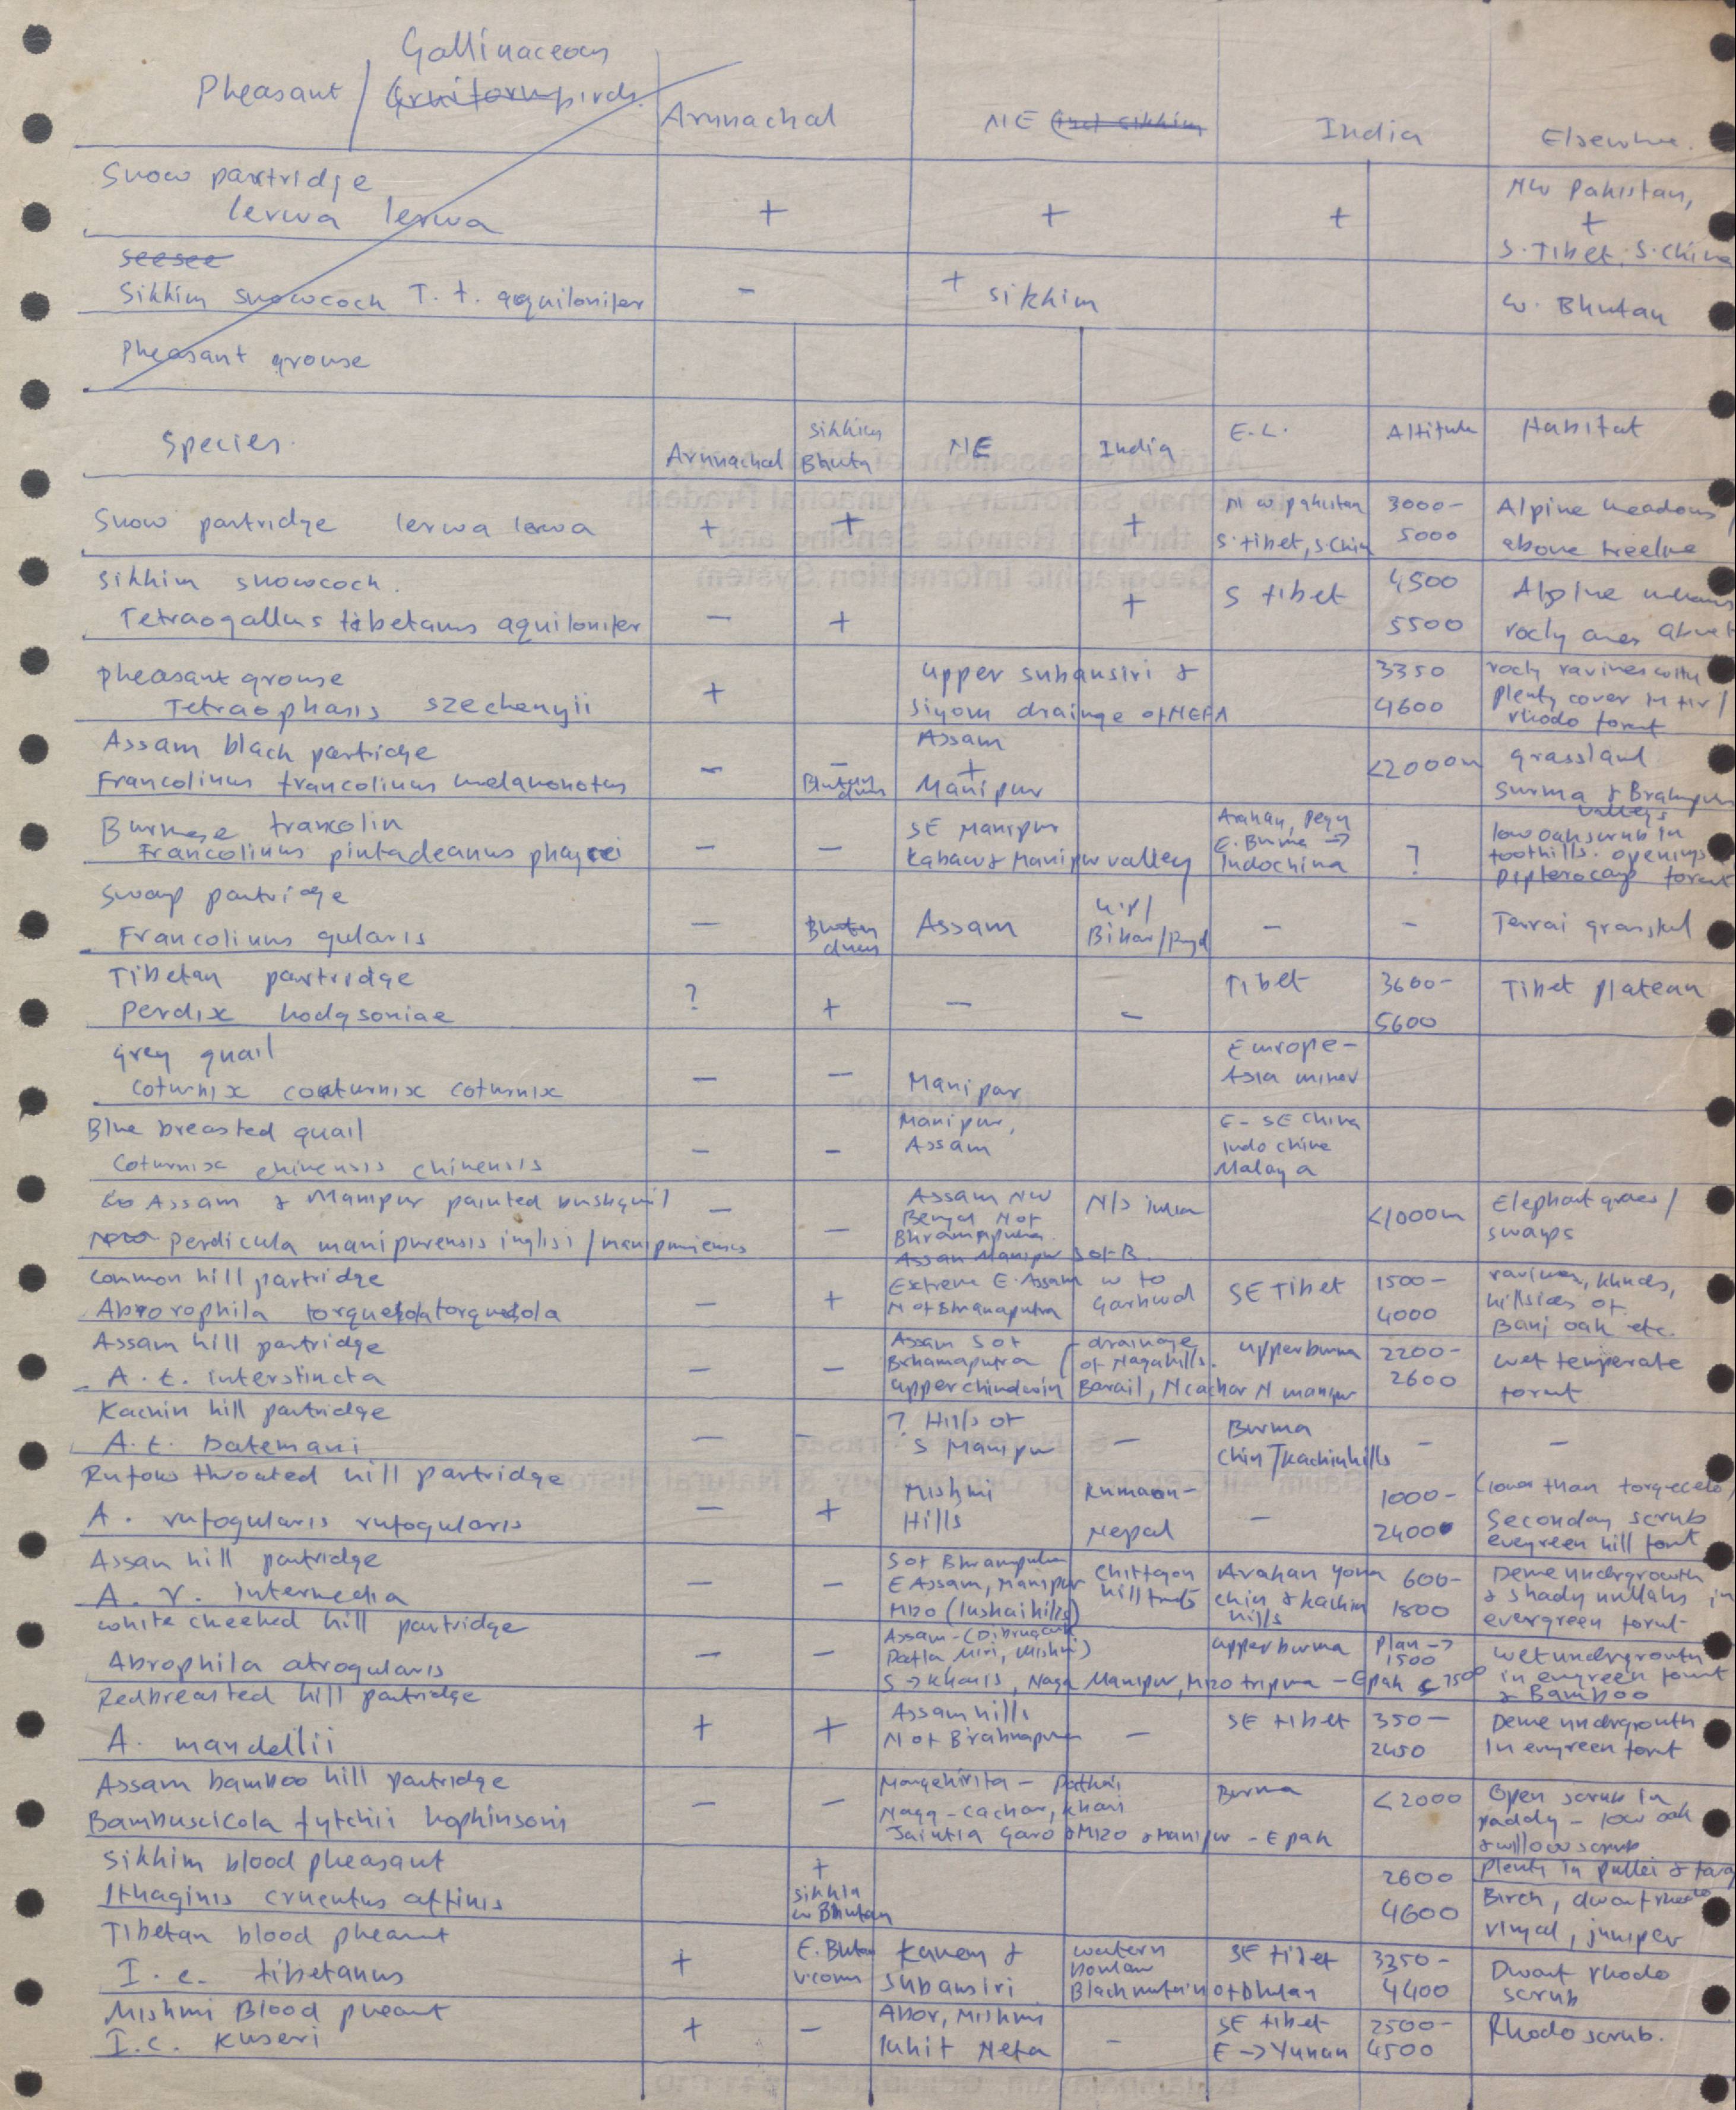 Gallinaceous
Pheasant / birds
Arunachal
NE (incl sikkim
India
Elsewhere.
Snow partridge
lerwa lerwa
+
+
+
NW Pakistan,
+
S. Tibet, S. China
seesee
Sikkim snowcock T. t. aquilonifer
-
+ sikkim
W. Bhutan
Pheasant grouse
Species.
Arunachal
Sikkim
Bhuta
NE
India
E.L.
Altitude
Habitat
Snow partridge lerwa lerwa
+
+
+
N W pakistan
S. tibet, S. Chin
3000-
5000
Alpine meadows
above treeline
Sikkim snowcock.
Tetraogallus tibetanus aquilonifer
-
+
+
S tibet
4500
5500
Alpine
rocky ares above
pheasant grouse
Tetraophasis szechenyii
+
upper subansiri &
Siyom drainge of NEFA
3350
4600
rocky ravines with
plenty cover in fir /
rhodo forest
Assam black partridge
Francolinus francolinus melanonotus
-
-
Bhutan
duns
Assam
+
Manipur
<2000m
grassland
Surma & Brahmpur
valleys
Burmese francolin
Francolinus pintadeanus phayrei
-
-
SE Manipur
Kabaw & Manipur valley
Arakan, Pegu
E. Burma →
Indochina
?
low oak scrub in
foothills. openings
Dipterocarp forest
Swap partridge
Francolinus gularis
-
Bhutan
duns
Assam
U.P/
Bihar/
-
-
Terrai grassland
Tibetan partridge
Perdix hodgsoniae
?
+
-
-
Tibet
3600-
5600
Tibet plateau
Grey quail
Coturnix coturnix coturnix
-
-
Manipur
Europe-
Asia minor
Blue breasted quail
Coturnix chinensis chinensis
-
-
Manipur,
Assam
E- SE China
Indo chine
Malay a
Assam & Manipur painted bushquail
Perdicula manipurensis inglisi / manipurensis
-
-
Assam NW
Bengal N of
Bhramaputra
Assan Manipur S of B
N/s India
<1000m
Elephant grass /
swaps
Common hill partridge
Aborophila torqueola torqueola
-
+
Extreme E. Assam
N of Bhramaputra
w to
Garhwal
SE Tibet
1500-
4000
ravines, khuds,
hillsides of
Banj oak etc.
Assam hill partridge
A. t. interstincta
-
-
Assam S of
Brhamaputra
upper chindwin
- drainage
of Nagahills.
Barail, N cachar N manipur
upperburma
2200-
2600
wet temperate
forest
Kachin hill partridge
A. t. batemani
-
-
? Hills of
S Manipur
-
Burma
Chin / kachinhills
-
-
Rufous throated hill partridge
A. rufogularis rufogularis
-
+
Mishmi
Hills
Kumaon-
Nepal
-
1000-
2400
(lower than torqueola)
Seconday scrub
evegreen hill forest
Assan hill partridge
A. r. intermedia
-
-
S of Bhramputra
E Assam, Manipur
Mizo (lushai hills)
Chittagon
hill tracts
Arakan yoma
chin & kachin
hills
600-
1800
Dense undergrowth
& shady nullahs in
evergreen forest-
White cheeked hill partridge
Abrophila atrogularis
-
-
Assam - (Dibrugarh
Dafla Miri, Mishmi)
S → Khasis, Naga Manipur, Mizo tripura - E pak
upperburma
plan →
1500
< 750
wet undergrowth
in evegreen forest
& Bamboo
Redbreasted hill partridge
A. mandellii
+
+
Assam hills
N of Brahmapura
-
SE tibet
350-
2450
Dense undergrowth
In evegreen forest
Assam bamboo hill partridge
Bambuscicola fytchii hopkinsoni
-
-
Margehirita - Patkai
Naga - Cachar, Khasi
Jaintia Garo & Mizo & Manipur - E pak
Burma
<2000
Open scrub in
paddy - low oak
& willow scrub
Sikhim blood pheasant
Ithaginis cruentus affinis
+
sikkim
w Bhutan
2600
4600
Plenty in
Birch, dwarf rhodo
ringal, juniper
Tibetan blood pheasant
I. c. tibetanus
+
E. Bhutan
Kameng &
subansiri
western
boundary
Black mntain of bhutan
SE tibet
3350-
4400
Dwarf rhodo
scrub
Mishmi Blood pheasant
I. c. kuseri
+
-
Abor, Mishmi
luhit Nefa
-
SE tibet
E → Yunan
2500-
4500
Rhodo scrub.